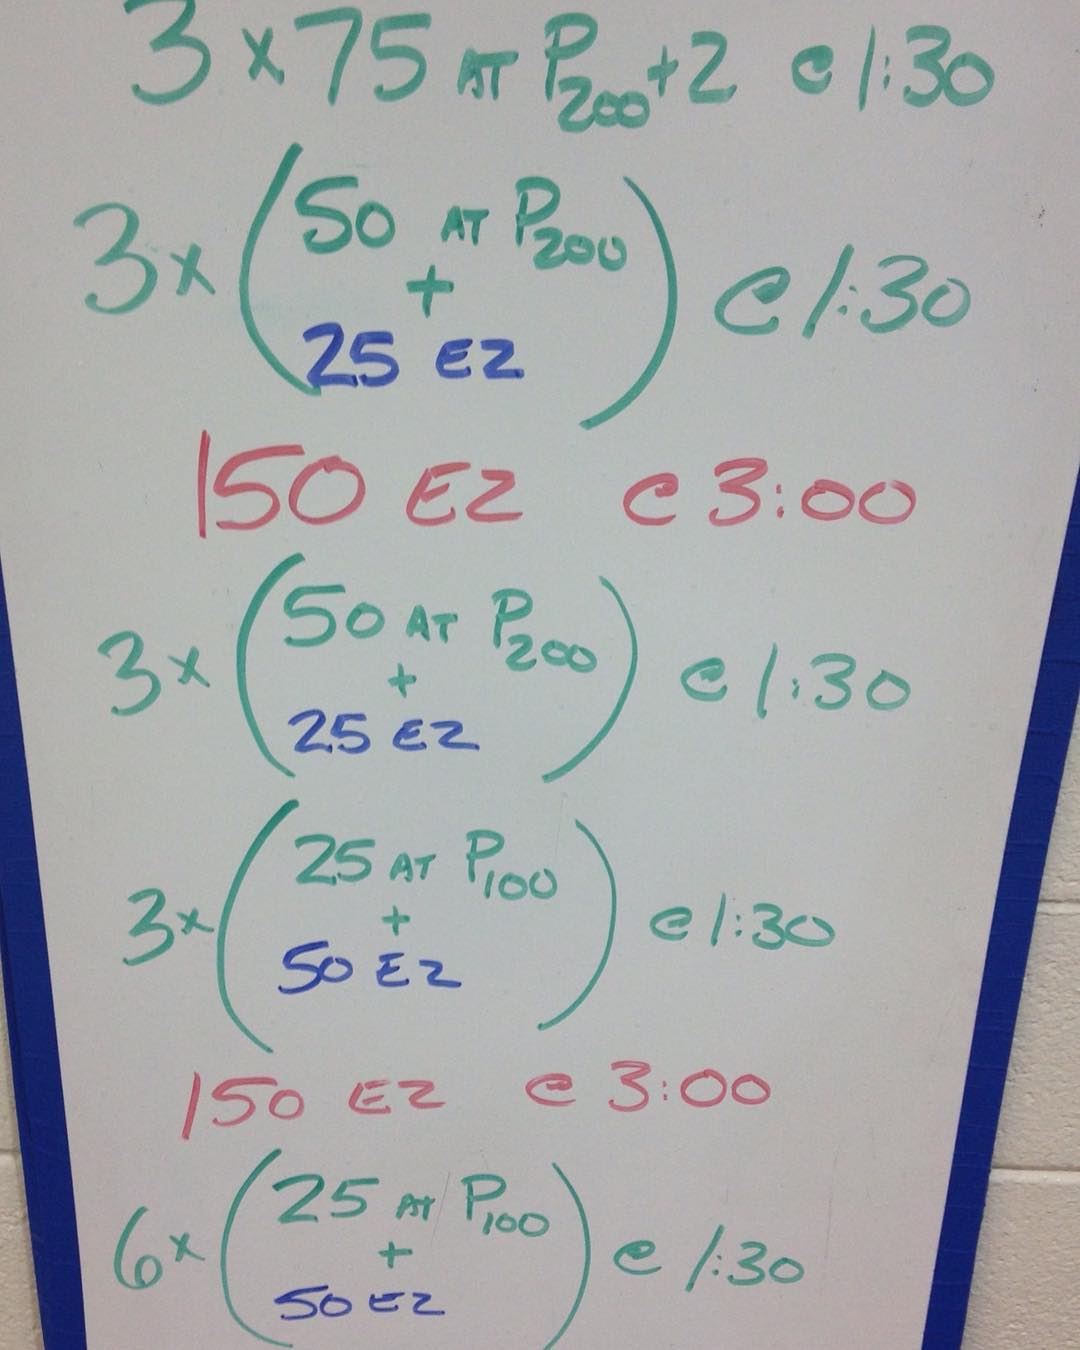 3 x 75 AT P200+2 @ 1:30
50 AT P200
3x ( + ) @ 1:30
25 EZ
150 EZ @ 3:00
50 AT P200
3x ( + ) @ 1:30
25 EZ
25 AT P100
3x ( + ) @ 1:30
50 EZ
150 EZ @ 3:00
25 AT P100
6x ( + ) @ 1:30
50 EZ